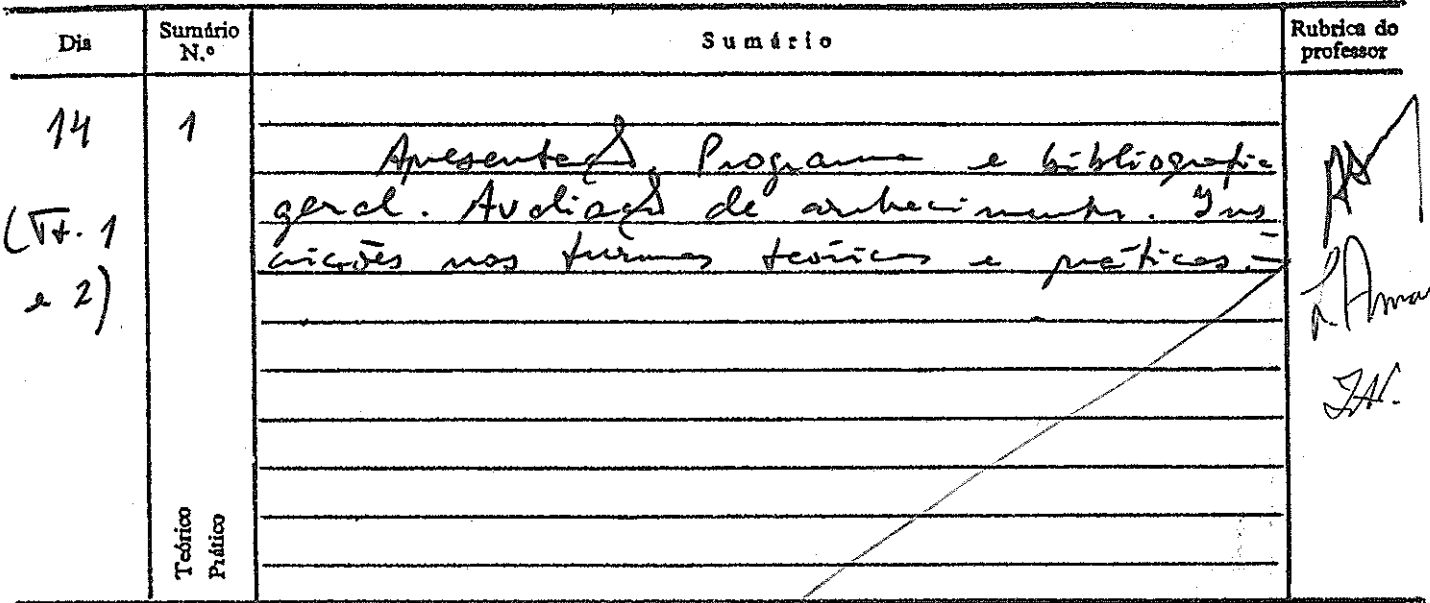 Dia
Sumário N.º
Sumário
Rubrica do professor
14
(Tt. 1
e 2)
1
Apresentação. Programa e bibliografia
geral. Avaliação de conhecimentos. Ins
crições nas turmas teóricas e práticas.=
Teórico
Prático